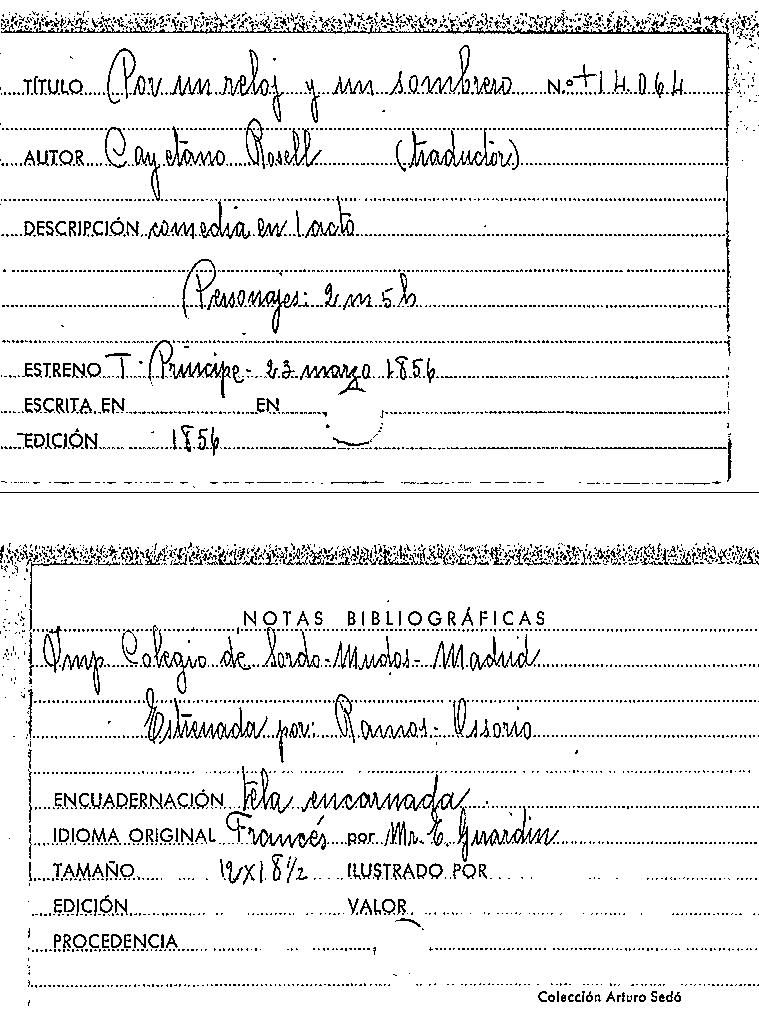 TÍTULO Por un reloj y un sombrero N.º +14064
AUTOR Cayetano Rosell (traductor)
DESCRIPCIÓN comedia en 1 acto
Personajes: 2 m 5 h
ESTRENO T. Príncipe - 23 marzo 1856
ESCRITA EN EN
EDICIÓN 1856
NOTAS BIBLIOGRÁFICAS
Imp Colegio de Sordo-Mudos - Madrid
Estrenada por: Ramos - Ossorio
ENCUADERNACIÓN tela encarnada
IDIOMA ORIGINAL Francés por Mr. E. Guardin
TAMAÑO 12x18½ ILUSTRADO POR
EDICIÓN VALOR
PROCEDENCIA
Colección Arturo Sedó